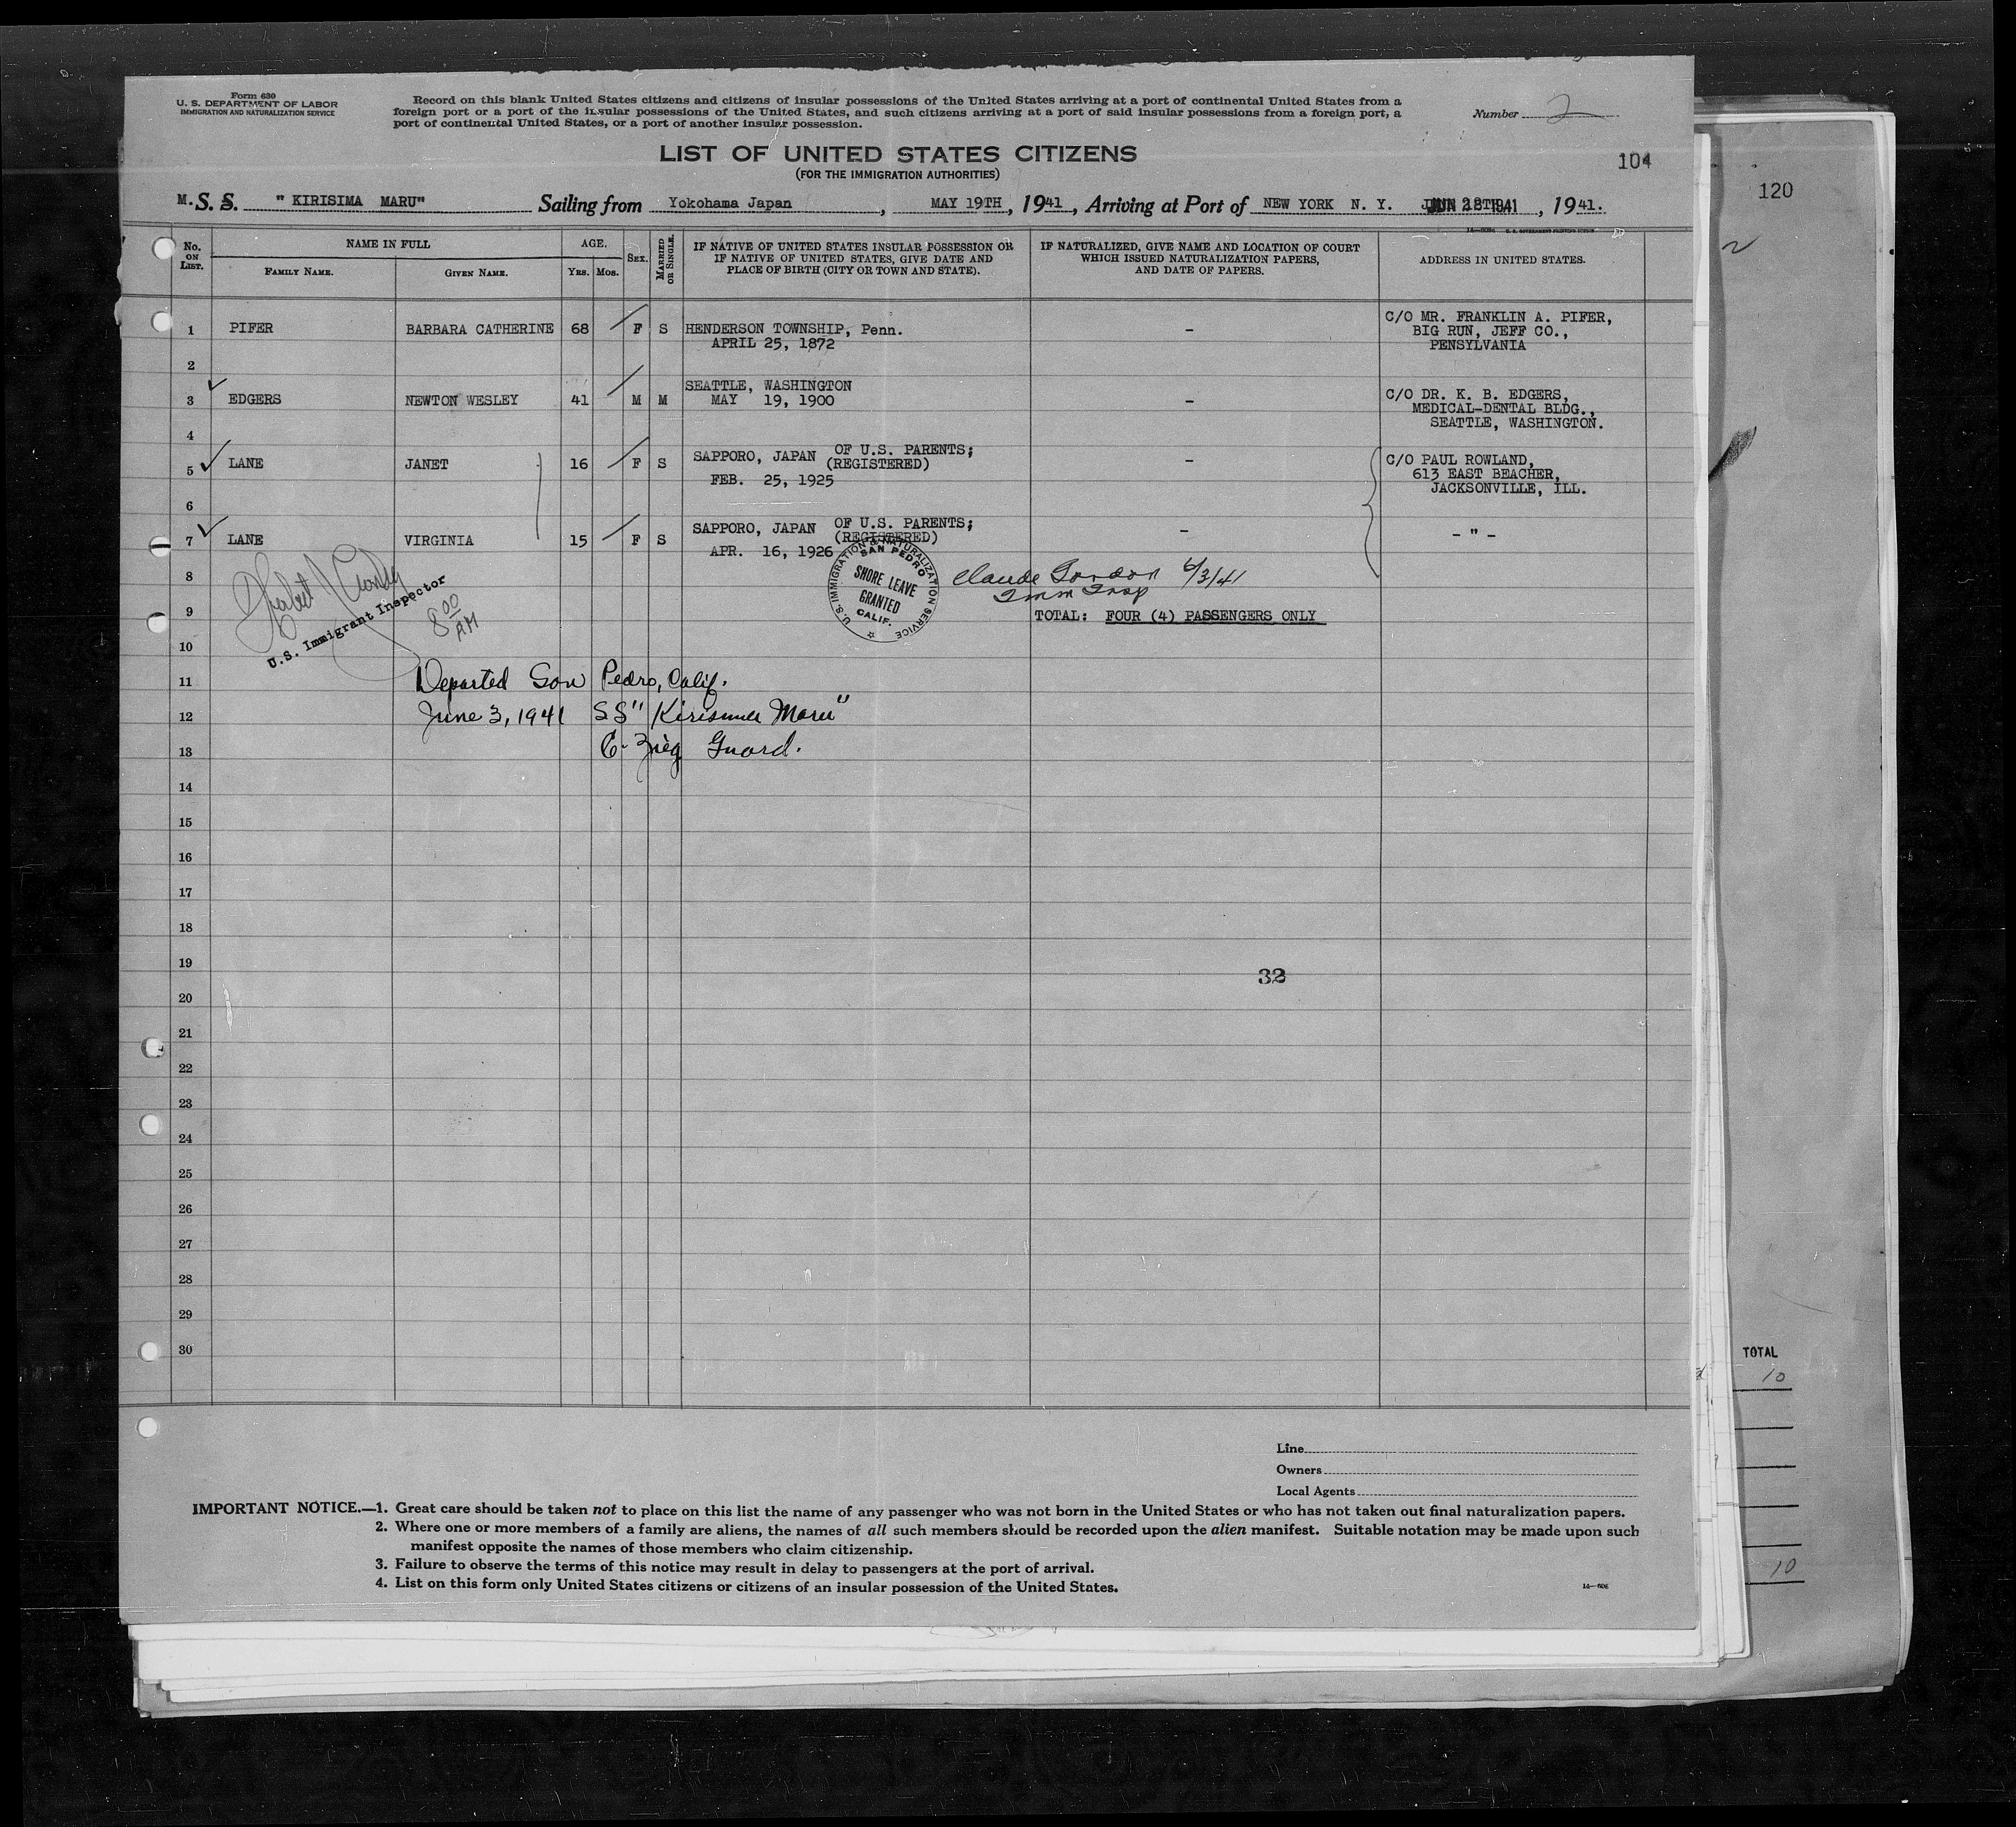 Form 630
U. S. DEPARTMENT OF LABOR
IMMIGRATION AND NATURALIZATION SERVICE
Record on this blank United States citizens and citizens of insular possessions of the United States arriving at a port of continental United States from a
foreign port or a port of the insular possessions of the United States, and such citizens arriving at a port of said insular possessions from a foreign port, a
port of continental United States, or a port of another insular possession.
Number 2
LIST OF UNITED STATES CITIZENS
(FOR THE IMMIGRATION AUTHORITIES)
104
120
M. S. S. " KIRISIMA MARU" Sailing from Yokohama Japan, MAY 19TH, 1941, Arriving at Port of NEW YORK N. Y. JUN 28 1941, 1941.
No. ON LIST.
NAME IN FULL
FAMILY NAME. GIVEN NAME.
AGE.
YRS. MOS.
SEX.
MARRIED OR SINGLE.
IF NATIVE OF UNITED STATES INSULAR POSSESSION OR
IF NATIVE OF UNITED STATES, GIVE DATE AND
PLACE OF BIRTH (CITY OR TOWN AND STATE).
IF NATURALIZED, GIVE NAME AND LOCATION OF COURT
WHICH ISSUED NATURALIZATION PAPERS,
AND DATE OF PAPERS.
ADDRESS IN UNITED STATES.
1 PIFER BARBARA CATHERINE 68 F S HENDERSON TOWNSHIP, Penn. – C/O MR. FRANKLIN A. PIFER,
APRIL 25, 1872 BIG RUN, JEFF CO.,
PENSYLVANIA
2
SEATTLE, WASHINGTON
3 EDGERS NEWTON WESLEY 41 M M MAY 19, 1900 – C/O DR. K. B. EDGERS,
MEDICAL-DENTAL BLDG.,
SEATTLE, WASHINGTON.
4
5 LANE JANET 16 F S SAPPORO, JAPAN OF U.S. PARENTS; – C/O PAUL ROWLAND,
(REGISTERED) 613 EAST BEACHER,
FEB. 25, 1925 JACKSONVILLE, ILL.
6
7 LANE VIRGINIA 15 F S SAPPORO, JAPAN OF U.S. PARENTS; – – " –
(REGISTERED)
APR. 16, 1926
8
U.S. Immigrant Inspector
8 00 AM
U. S. IMMIGRATION & NATURALIZATION SERVICE
SAN PEDRO
SHORE LEAVE
GRANTED
CALIF.
Claude Gordon 6/3/41
Imm Insp
9 TOTAL: FOUR (4) PASSENGERS ONLY
10
11 Departed San Pedro, Calif.
12 June 3, 1941 SS "Kirisima Maru"
13 Guard.
14
15
16
17
18
19
32
20
21
22
23
24
25
26
27
28
29
30
TOTAL
10
10
Line
Owners
Local Agents
IMPORTANT NOTICE.—1. Great care should be taken not to place on this list the name of any passenger who was not born in the United States or who has not taken out final naturalization papers.
2. Where one or more members of a family are aliens, the names of all such members should be recorded upon the alien manifest. Suitable notation may be made upon such
manifest opposite the names of those members who claim citizenship.
3. Failure to observe the terms of this notice may result in delay to passengers at the port of arrival.
4. List on this form only United States citizens or citizens of an insular possession of the United States.